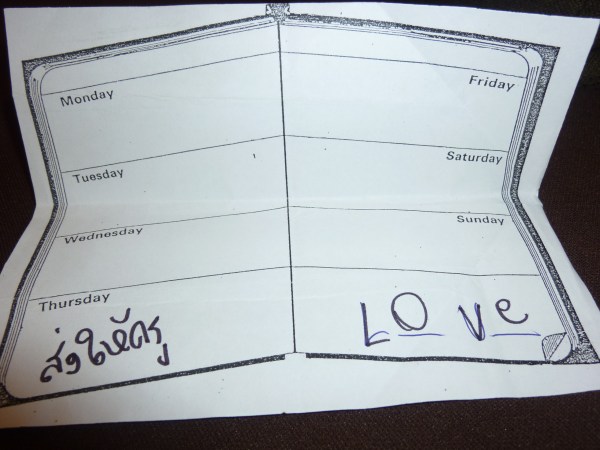 Monday
Tuesday
Wednesday
Thursday
ส่งให้ครู
Friday
Saturday
Sunday
Love